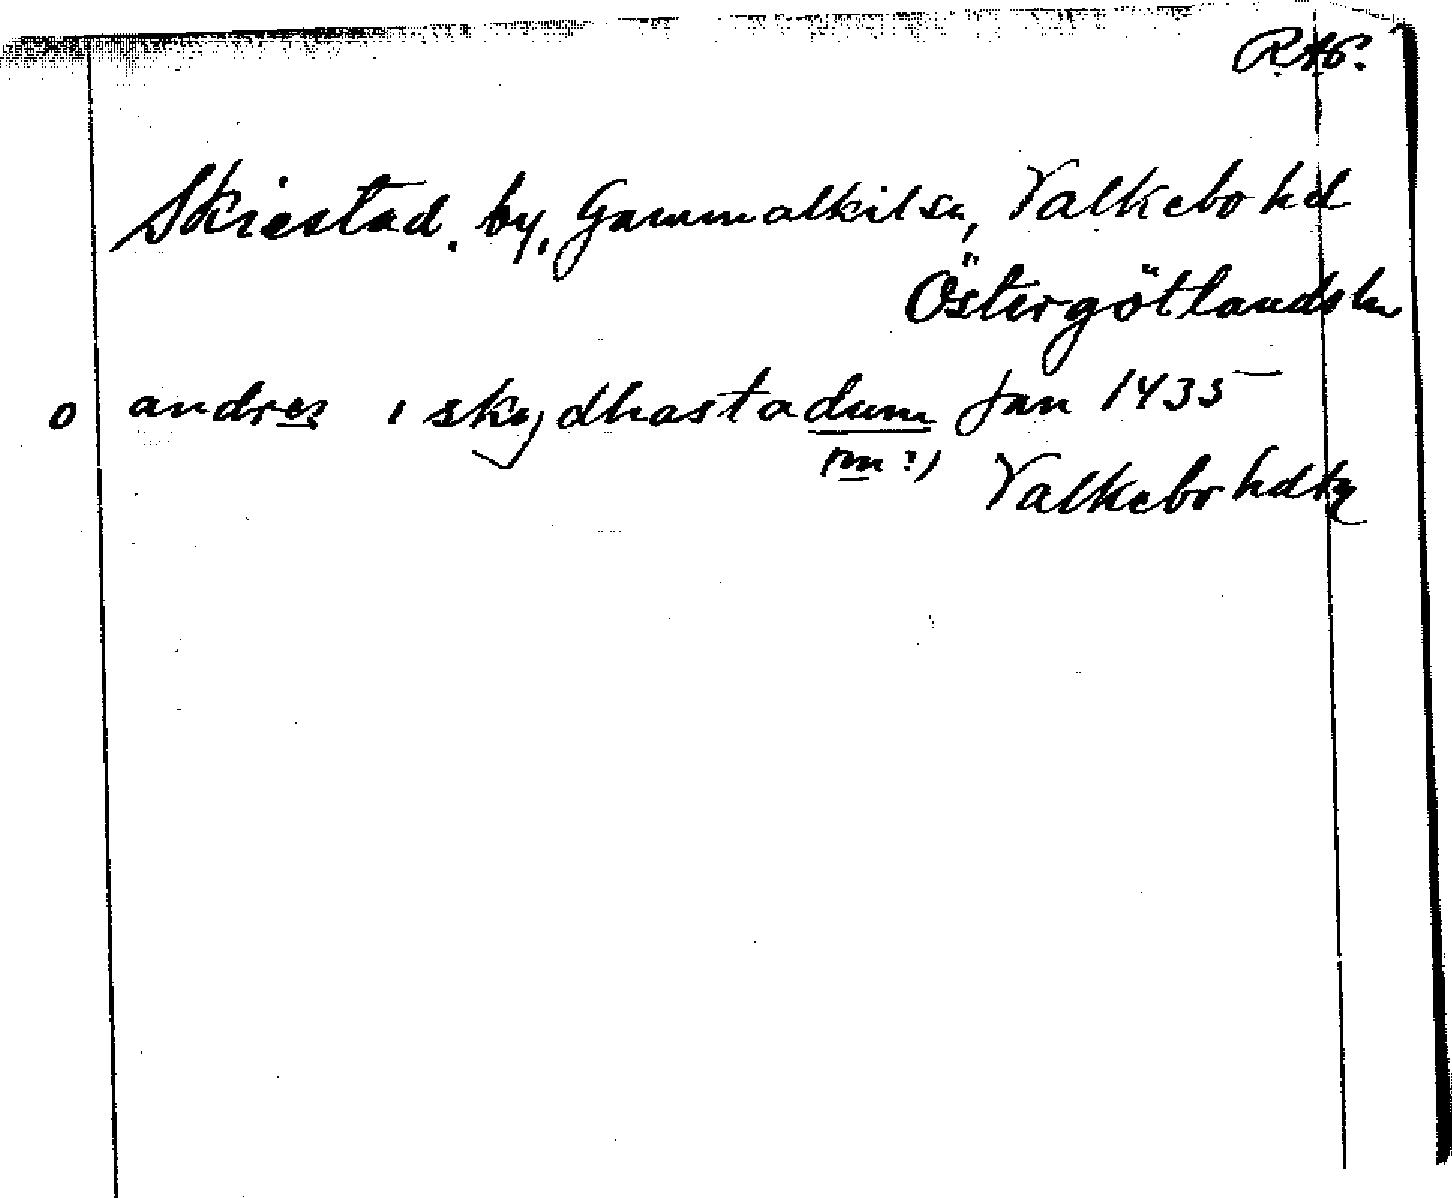 RAp.
Skiestad. by, Gammalkils sn, Valkebo hd
Östergötlands ln
o andres i skydhastadum Jan 1435
(m?)
Valkebo hdtg